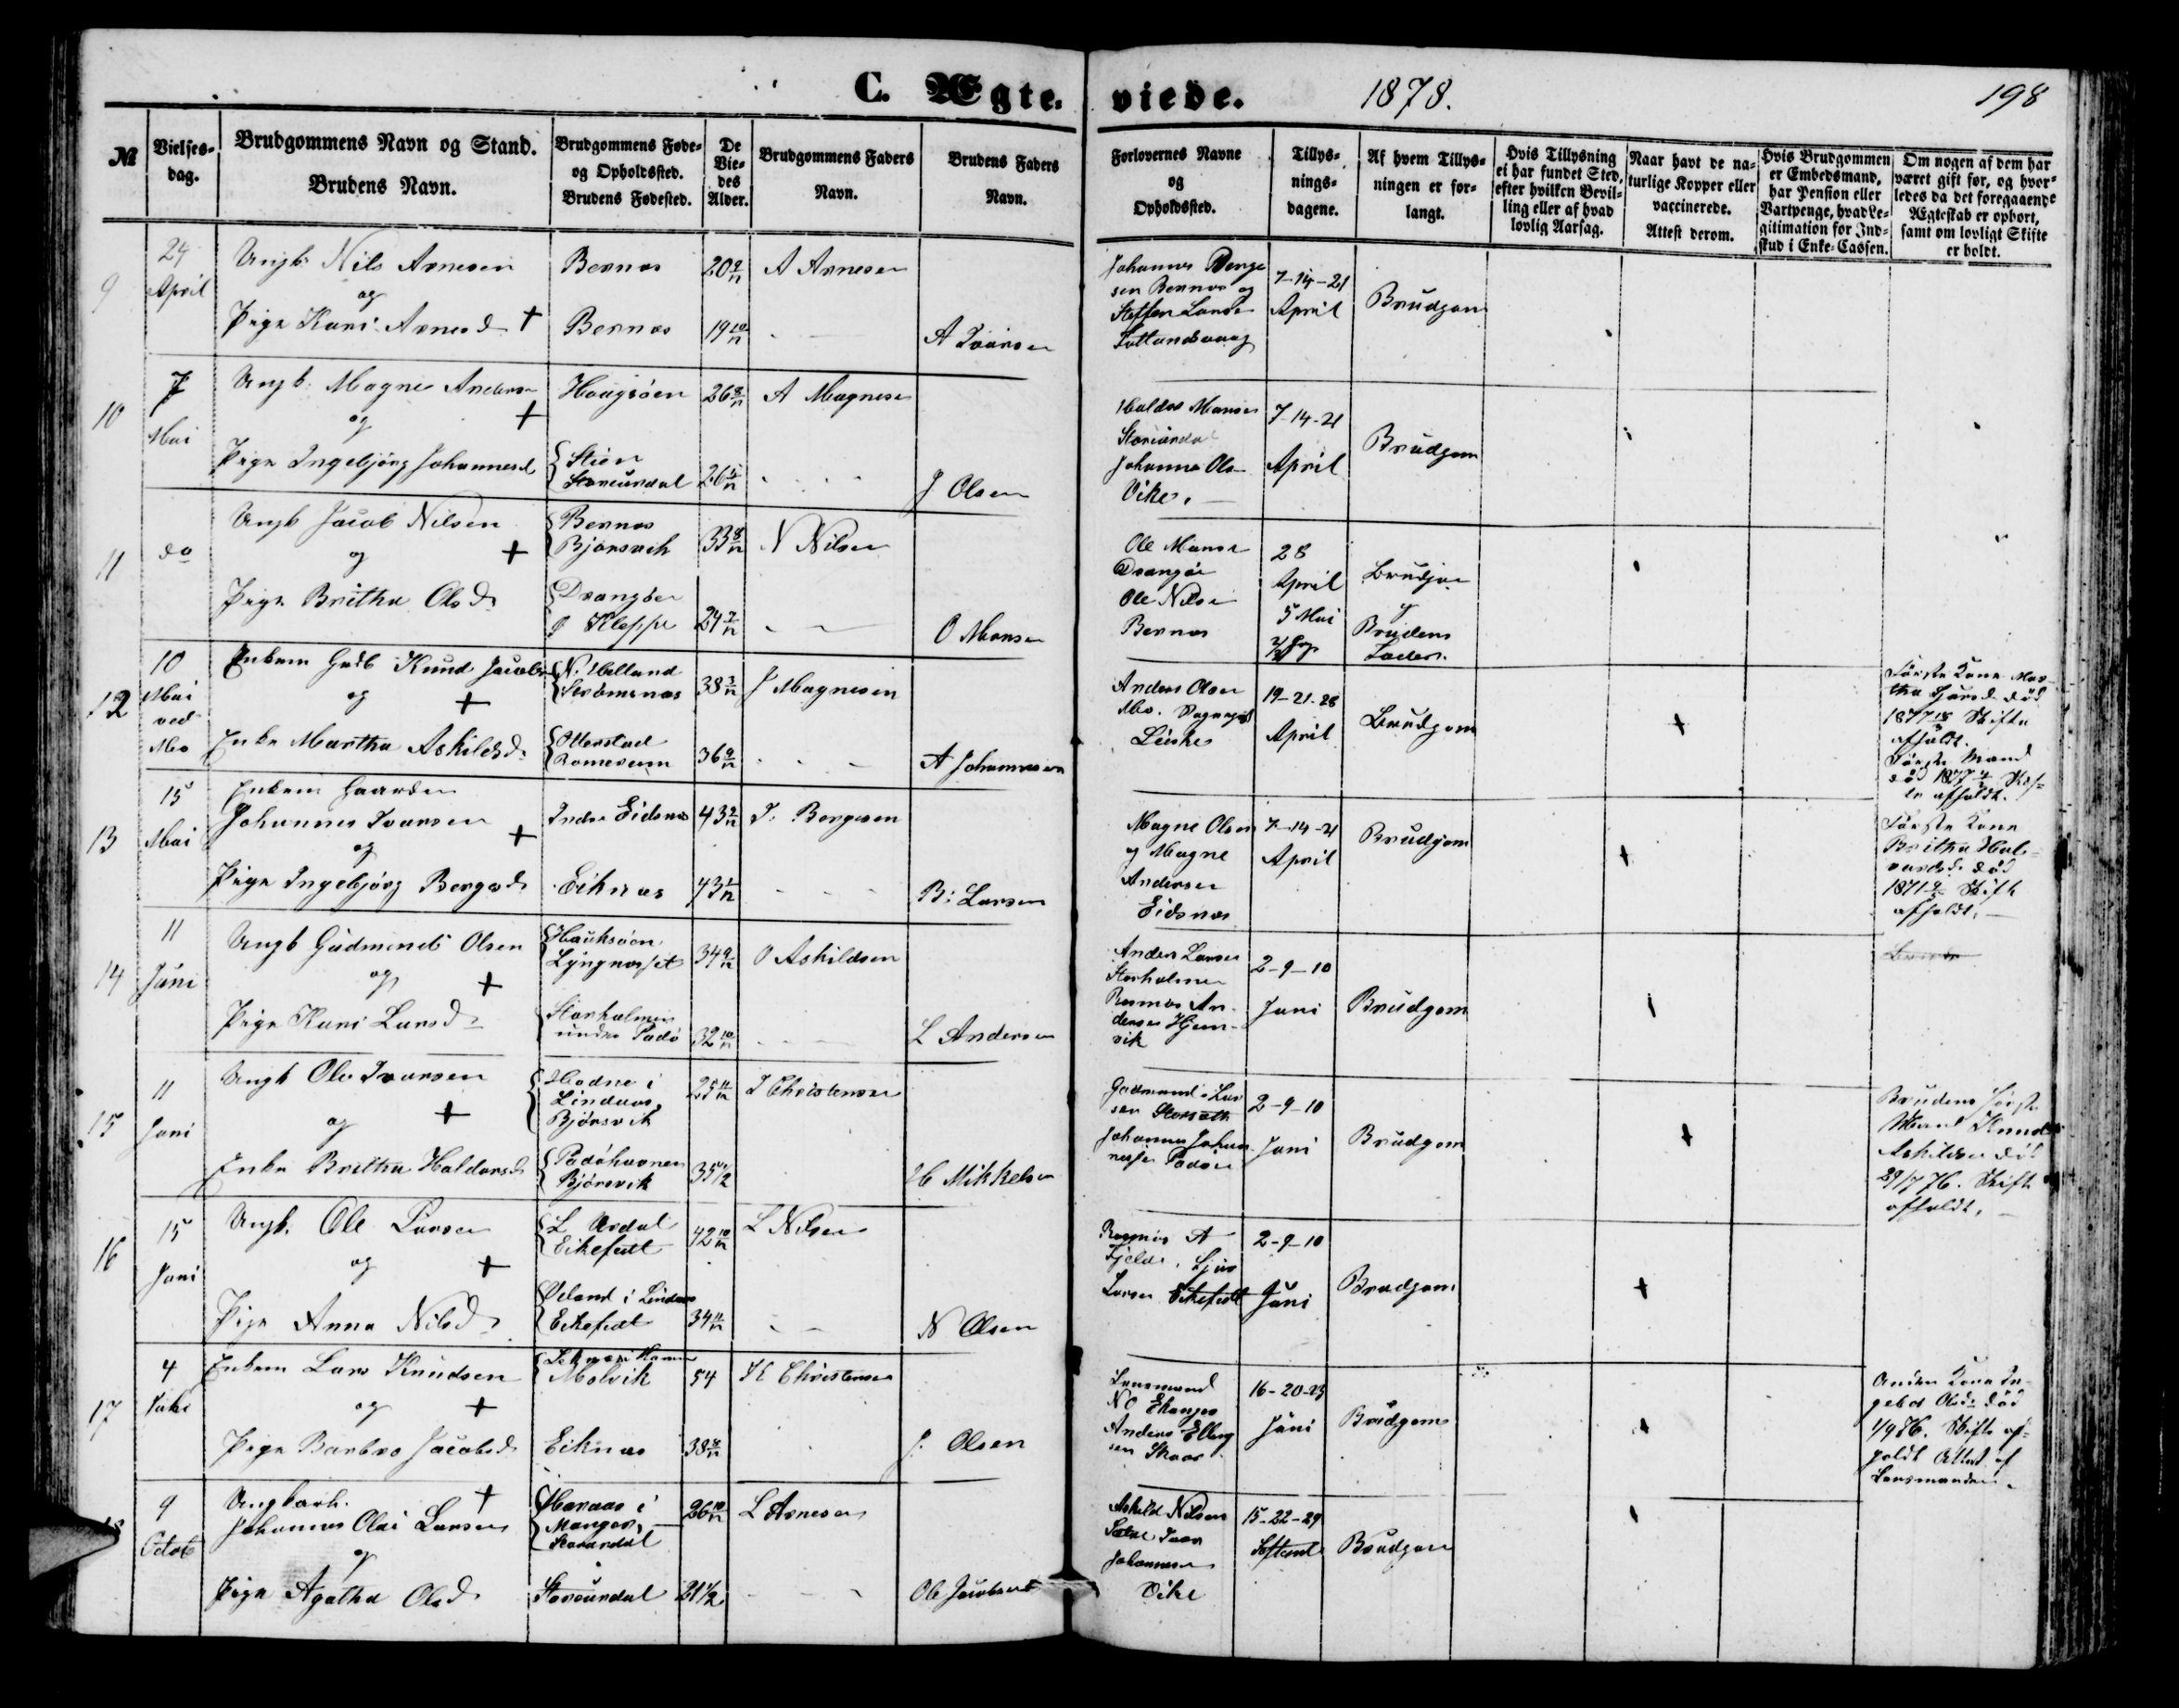 C. Ægte-viede. 1878. 198
№
Vielses-dag.
Brudgommens Navn og Stand.
Brudens Navn.
Brudgommens Føde-
og Opholdssted.
Brudens Fødested.
De
Vie-
des
Alder.
Brudgommens Faders
Navn.
Brudens Faders
Navn.
Forlovernes Navne
og
Opholdssted.
Tillys-
nings-
dagene.
Af hvem Tillys-
ningen er for-
langt.
Hvis Tillysning
ei har fundet Sted,
efter hvilken Bevil-
ling eller af hvad
lovlig Aarsag.
Naar havt de na-
turlige Kopper eller
vaccinerede.
Attest derom.
Hvis Brudgommen
er Embedsmand,
har Pension eller
Vartpenge, hvad Le-
gitimation for Ind-
skud i Enke-Cassen.
Om nogen af dem har
været gift før, og hvor-
ledes da det foregaaende
Ægteskab er ophørt,
samt om lovligt Skifte
er holdt.
9
24
April
Ungk. Nils Arnesen
og
Pige Kari Arnesd +
Bernæs
Bernæs
20 9/12
19 10/12
A Arnesen
A Ivarsen
Johannes Berge
sen Bernæs og
Steffen Lards
7-14-21
April
Brudgom
10
7
Mai
Ungk. Magne Anders
og +
Pige Ingebjørg Johannesd
Haugsøen
Stien
Storeurdal
26 8/12
26
A Magnese
J Olsen
Haldor Monsen
Storeurdal
Johannes Ols
Vike.
7-14-21
April
Brudgom
11
do
Ungk Jacob Nilsen
og +
Pige Britha Olsd.
Bernæs
Bjørsvik
Drangøen
p Kleppe
33 8/12
24
N Nilsen
O Monsen
Ole Monse
Drangøi
Ole Nilse
Bernæs
28
April
5 Mai
Brudgom
og
Brudens
Fader.
12
10
Mai
ved
Mo
Enkem Grdb Knud Jacobs
og +
Enke Martha Askildsd.
N. Helland
Strømsnæs
Otterstad
Romereim
38
36
J Magnesen
A Johannesen
Anders Olsen
Mo.
19-21-28
April
Brudgom
Første Kone Mar-
tha død
1877 Skifte
afholdt.
Første Mand
død 1877 Skif-
te afholdt.
13
15
Mai
Enkem Gaardm
Johannes Ivarsen +
og
Pige Ingebjørg Bergesd.
Indre Eidsnæs
Eiknæs
43
43
I. Bergesen
B. Larsen
Magne Olsen
og Magne
Andersen
Eidsnæs
7-14-21
April
Brudgom
Første Kone
Britha Hal-
vardsd. død
1871 Skifte
afholdt.
14
11
Juni
Ungk Gudmund Olsen
og +
Pige Kari Larsd.
Hauksøen
Storholmen
under Padø
34
32 10/12
O Askildsen
L Andersen
Anders Larsen
Storholmen
Rasmus An-
dersen Hjem-
vik
2-9-10
Juni
Brudgom
15
11
Juni
Ungk Ole Ivarsen
og +
Enke Britha Haldorsd.
Hodne i
Lindaas,
Bjørsvik
Padøhavnen
Bjørsvik
25 11/12
35 1/2
I Christensen
H Mikkelsen
Gudmund Lar
sen
Johannes Johan
nesse Padøen
2-9-10
Juni
Brudgom
Brudens første
Mand Knud
Askildsen død
29/7 76. Skifte
afholdt.
16
15
Juni
Ungk. Ole Larsen
og +
Pige Anna Nilsd.
L Urdal
Eikefedt
Øeland i Lindaas
Eikefedt
42 10/12
34 11/12
L Nilsen
N Olsen
Rasmus A
Fjelde,
Larsen Eikefedt
2-9-10
Juni
Brudgom
17
4
Juli
Enkem Lars Knudsen
og +
Pige Barbro Jacobsd.
Molvik
Eiknæs
54
38
K Christensen
J. Olsen
Lensmand
N O Ekanger
Anders Elling
sen Skaar
16-20-23
Juni
Brudgom
Anden Kone In-
gebor Olsd. død
1/9 76. Skifte af-
holdt Attest af
Lensmanden.
18
9
Octob
Ungkark. +
Johannes Olai Larsen
og
Pige Agatha Olsd.
Haraas i
Manger,
Storeurdal
Storeurdal
26 10/12
21 1/2
L Arnesen
Ole Jacobsen
Askild Nilsen
Ivar
Johannesen
Vike
15-22-29
Septemb
Brudgom